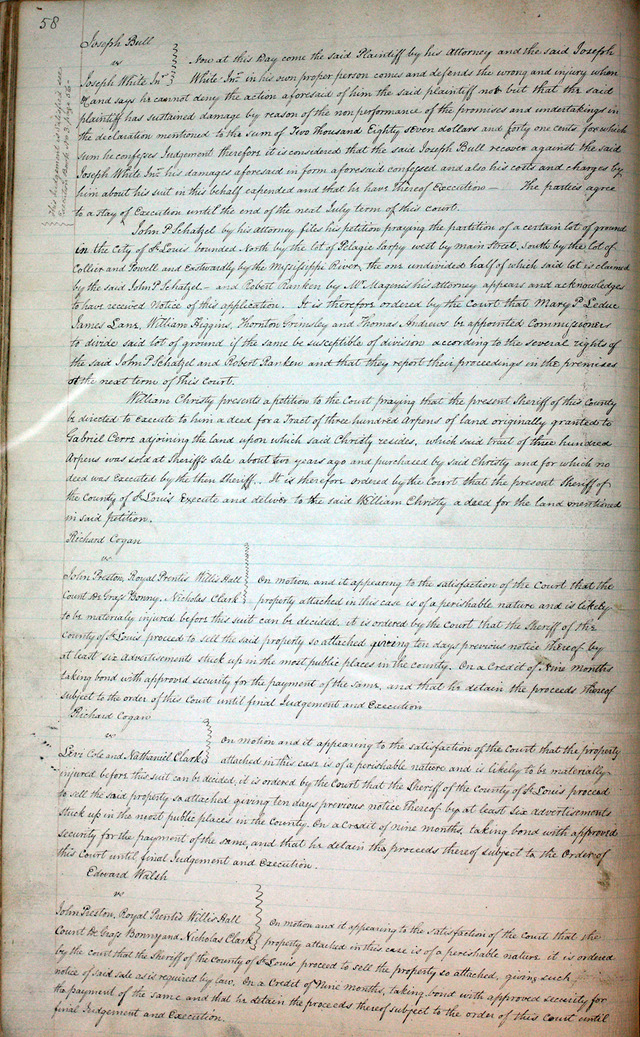 58
Joseph Bull
vs
Joseph White Jnr
Now at this Day come the said Plaintiff by his Attorney and the said Joseph
White Jnr. in his own proper person comes and defends the wrong and injury when
&and says he cannot deny the action aforesaid of him the said plaintiff nor but that the said
plaintiff has sustained damage by reason of the nonperformance of the promises and undertakings in
the declaration mentioned to the sum of Two thousand Eighty seven dollars and forty one cents for which
sum he confesses Judgement therefore it is considered that the said Joseph Bull recover against the said
Joseph White Jnr. his damages aforesaid in form aforesaid confessed and also his costs and charges by
him about his suit in this behalf expended and that he have thereof Execution — The parties agree
to a stay of Execution until the end of the next July term of this court.
John P Schatzel by his attorney files his petition praying the partition of a certain lot of ground
in the City of St Louis bounded North by the lot of Pelagie Sarpy west by main Street, South by the lot of
Collier and Powell and Eastwardly by the Mississippi River, the one undivided half of which said lot is claimed
by the said John P. Schatzel — and Robert Ranken by Mr Maginis his Attorney appears and acknowledges
to have received Notice of this application. It is therefore ordered by the Court that Mary P Leduc
James Lane, William Higgins, Thornton Grimsley and Thomas Andrews be appointed Commissioners
to divide said lot of ground if the same be susceptible of division according to the several rights of
the said John P Schatzel and Robert Ranken and that they report their proceedings in the premises
at the next term of this Court.
William Christy presents a petition to the Court praying that the present Sheriff of this County
be directed to execute to him a deed for a Tract of three hundred Arpens of land originally granted to
Gabriel Cerre adjoining the land upon which said Christy resides, which said tract of three hundred
Arpens was sold at Sheriff's sale about two years ago and purchased by said Christy and for which no
deed was executed by the then Sheriff. It is therefore ordered by the Court that the present Sheriff of
the County of St Louis Execute and deliver to the said William Christy a deed for the land mentioned
in said Petition.
Richard Cogan
vs
John Preston, Royal Prentis Willis Hall
Count De Grass Bonny, Nicholas Clark
On motion, and it appearing to the satisfaction of the Court that the
property attached in this case is of a perishable nature and is likely
to be materially injured before this suit can be decided, it is ordered by the Court that the Sheriff of the
County of St Louis proceed to sell the said property so attached giving ten days previous notice thereof by
at least six advertisements stuck up in the most public places in the county. On a Credit of Nine months
taking bond with approved security for the payment of the same, and that he detain the proceeds thereof
subject to the order of this Court until final Judgement and Execution
Richard Cogan
vs
Levi Cole and Nathaniel Clark
On motion and it appearing to the satisfaction of the Court that the property
attached in this case is of a perishable nature and is likely to be materially
injured before this suit can be decided, it is ordered by the Court that the Sheriff of the County of St Louis proceed
to sell the said property so attached giving ten days previous notice thereof by at least six advertisements
stuck up in the most public places in the County. On a Credit of nine months, taking bond with approved
security for the payment of the same, and that he detain the proceeds thereof subject to the Order of
this Court until final Judgement and Execution.
Edward Walsh
vs
John Preston, Royal Prentis Willis Hall
Count De Grass Bonny and Nicholas Clark
On motion and it appearing to the satisfaction of the Court that the
property attached in this case is of a pereshable nature it is ordered
by the court that the Sheriff of the County of St Louis proceed to sell the property so attached, giving such
notice of said sale as is required by law. On a Credit of Nine months, taking bond with approved security for
the payment of the same and that he detain the proceeds thereof subject to the order of this Court until
final Judgement and Execution.
This Judgement is satisfied see